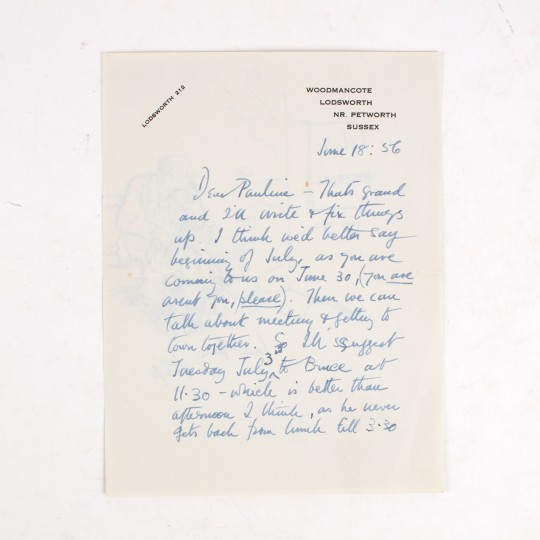 LODSWORTH 212
WOODMANCOTE
LODSWORTH
NR. PETWORTH
SUSSEX
June 18: 56
Dear Pauline – Thats grand
and I'll write & fix things
up. I think we'd better say
beginning of July, as you are
coming to us on June 30, (you are
arent you, please). Then we can
talk about meeting & getting to
town together. So I'll suggest
Tuesday July 3 to Bruce at
11.30 – which is better than
afternoon I think, as he never
gets back from lunch till 3.30